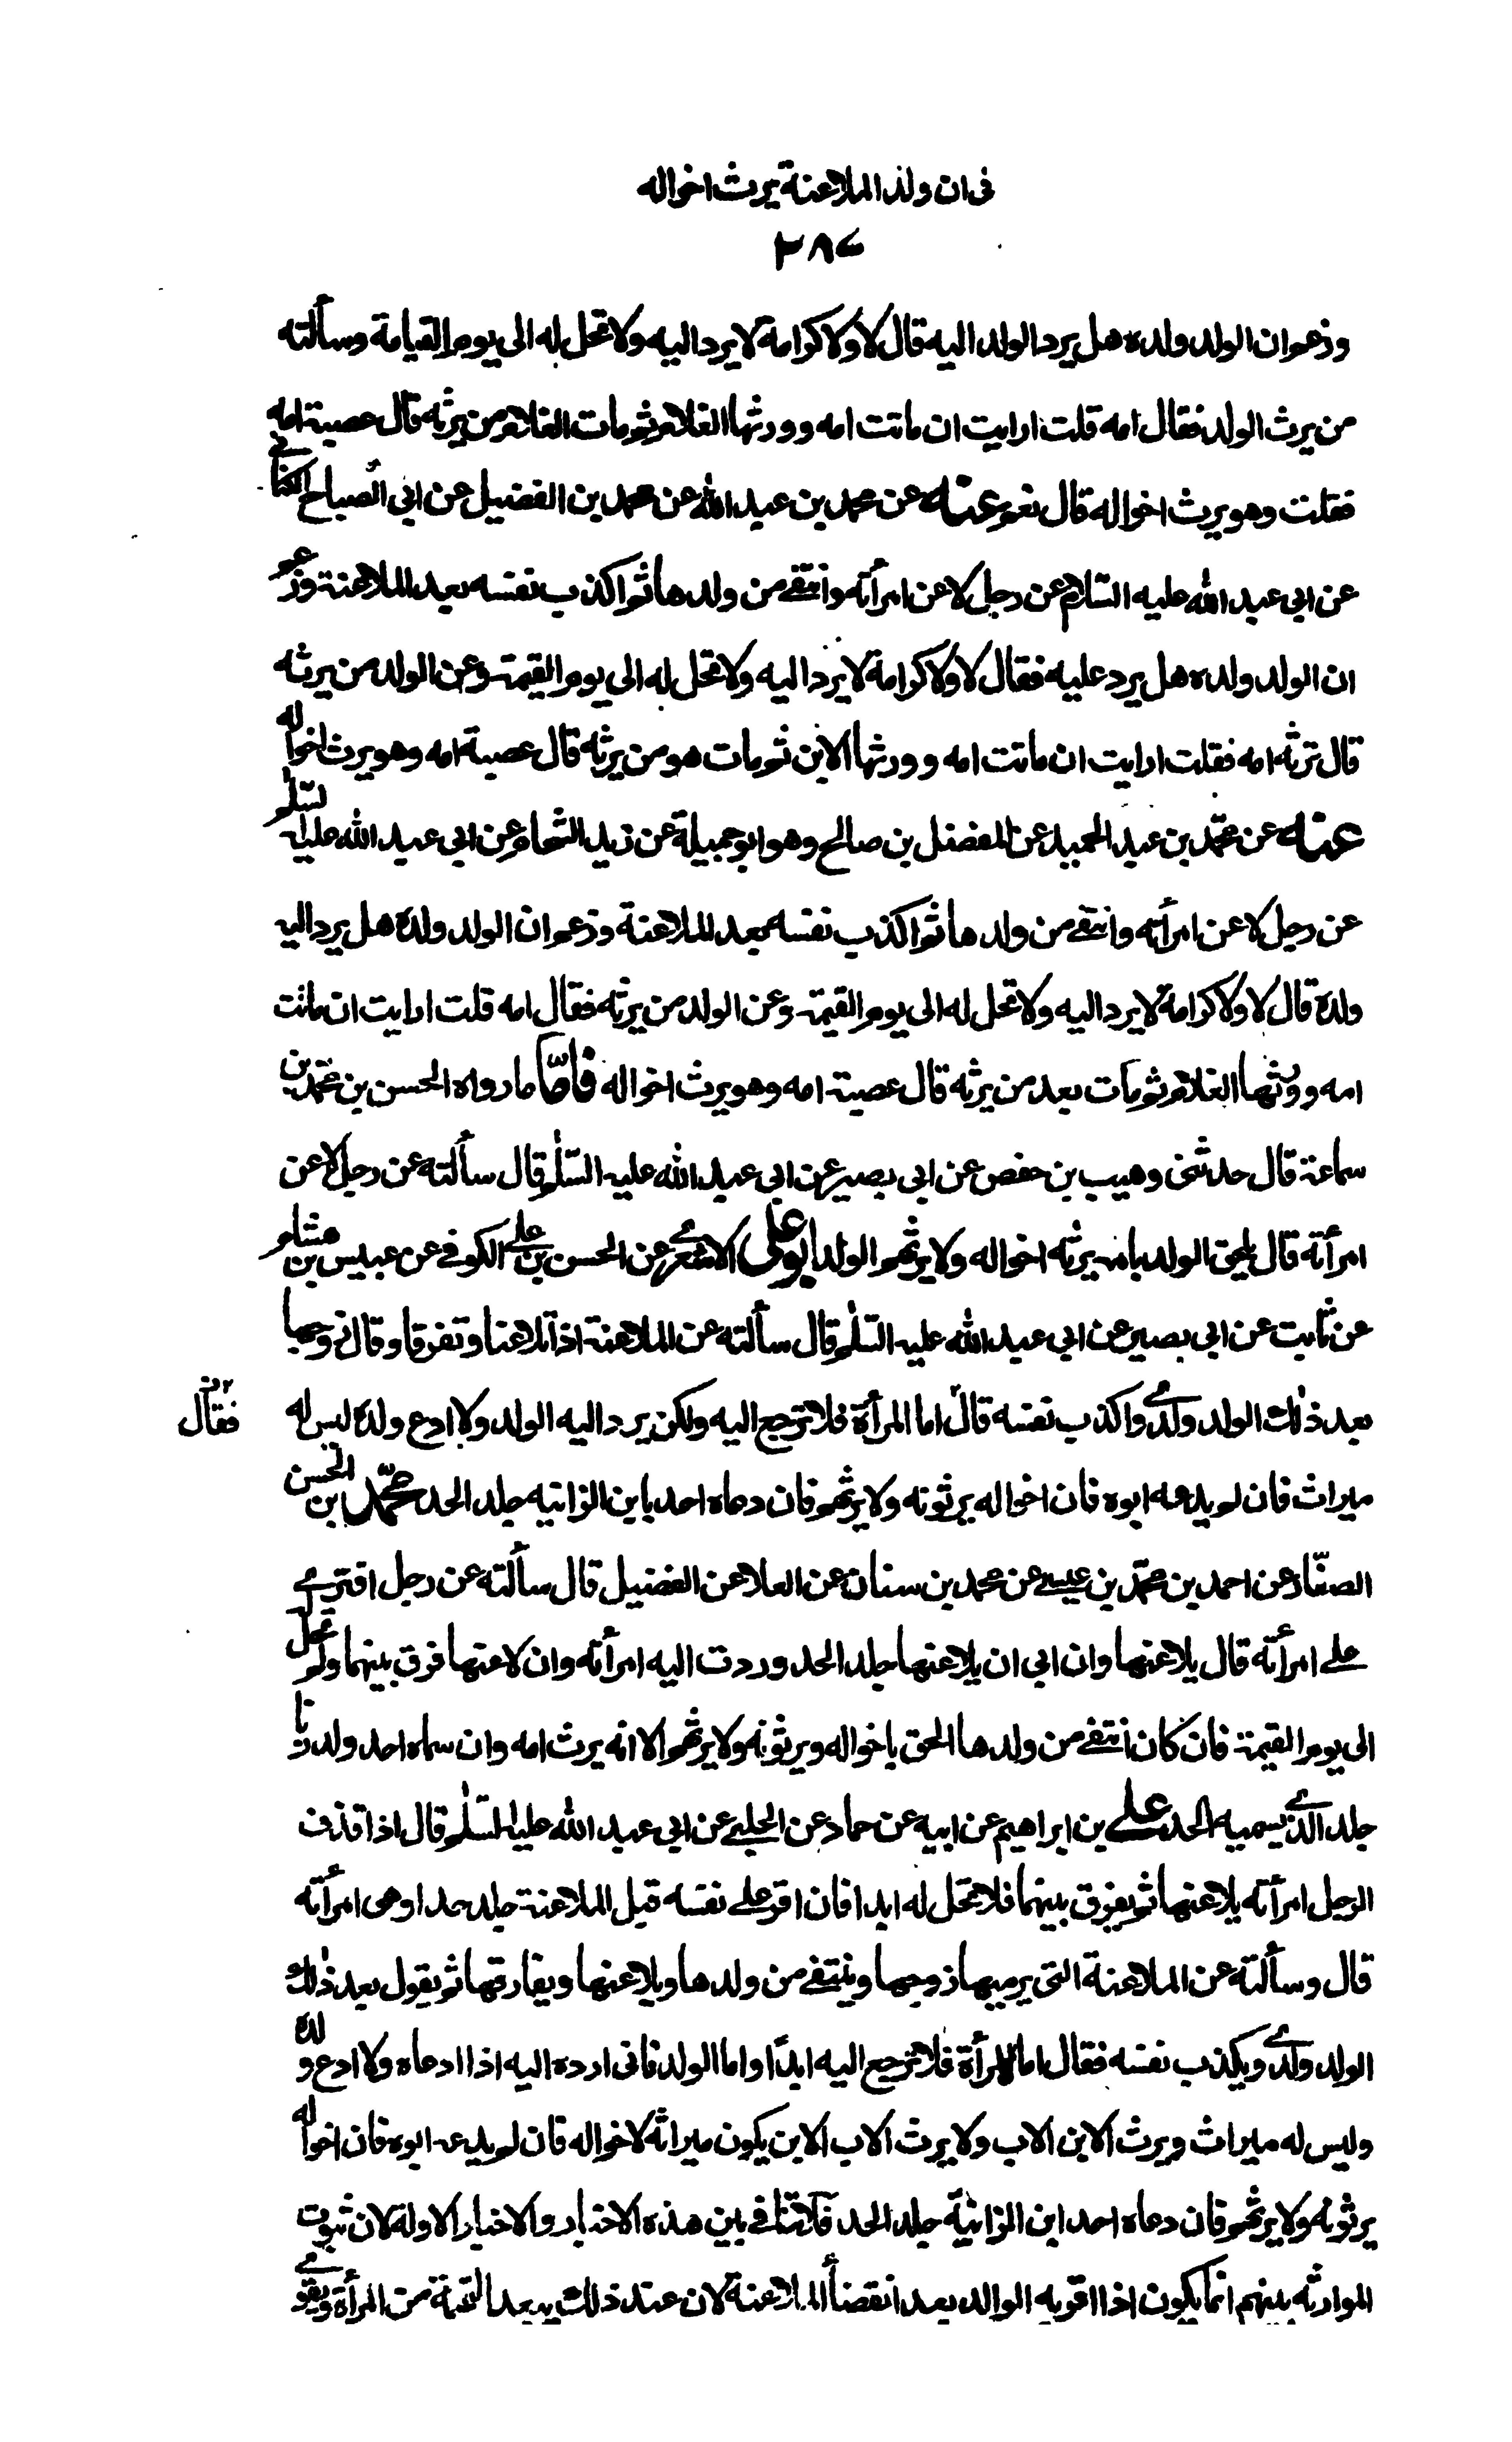 فى ان ولد الملاعنة يرث اخواله
٣٨٤
وزعم ان الولد ولده هل يرد الولد اليه قال لا ولا كرامة لا يرد اليه ولا تحل له الى يوم القيامة وسألته
من يرث الولد فقال امه قلت ارايت ان ماتت امه وورثها الغلام ثم مات الغلام من يرثه قال عصبة امه
فقلت وهو يرث اخواله قال نعم عنه عن محمد بن عبد الله عن محمد بن الفضيل عن ابي الصباح الكناني
عن ابي عبد الله عليه السلام عن رجل لاعن امرأته وانتفى من ولدها ثم اكذب نفسه بعد الملاعنة وزعم
ان الولد ولده هل يرد عليه فقال لا ولا كرامة لا يرد اليه ولا تحل له الى يوم القيمة وعن الولد من يرثه
قال ترثه امه فقلت ارايت ان ماتت امه وورثها الابن ثم مات هو من يرثه قال عصبة امه وهو يرث اخواله
عنه عن محمّد بن عبد الحميد عن المفضل بن صالح وهو ابو جميلة عن زيد الشحام عن ابي عبد الله عليه السّلم
عن رجل لاعن امرأته وانتفى من ولدها ثم اكذب نفسه بعد الملاعنة وزعم ان الولد ولده هل يرد اليه
ولده قال لا ولا كرامة لا يرد اليه ولا تحل له الى يوم القيمة وعن الولد من يرثه فقال امه قلت ارايت ان ماتت
امه وورثها الغلام ثم مات بعد من يرثه قال عصبة امه وهو يرث اخواله فأمّا ما رواه الحسن بن محمّد بن
سماعة قال حدثنى وهيب بن حفص عن ابي بصير عن ابي عبد الله عليه السّلم قال سألته عن رجل لاعن
امرأته قال يلحق الولد بامه يرثه اخواله ولا يرثهم الولد ابو على الاشعرى عن الحسن بن على الكوفى عن عبيس بن هشام
عن ثابت عن ابي بصير عن ابي عبد الله عليه السّلم قال سألته عن الملاعنة اذا تلاعنا وتفرقا وقال زوجها
بعد ذلك الولد ولدى واكذب نفسه قال اما المرأة فلا ترجع اليه ولكن يرد اليه الولد ولا ادع ولده ليس له
فقال
ميراث فان لم يدعه ابوه فان اخواله يرثونه ولا يرثهم فان دعاه احد بابن الزانيه جلد الحد محمّد بن الحسن
الصفّار عن احمد بن محمّد بن عيسى عن محمد بن سنان عن العلا عن الفضيل قال سألته عن رجل افترى
على امرأته قال يلاعنها وان ابى ان يلاعنها جلد الحد وردت اليه امرأته وان لاعنها فرق بينهما ولم تحل له
الى يوم القيمة فان كان انتفى من ولدها الحق باخواله ويرثونه ولا يرثهم الا انه يرث امه وان سماه احد ولد زنا
جلد الذى يسميه الحد على بن ابراهيم عن ابيه عن حماد عن الحلبى عن ابي عبد الله عليه السّلم قال اذا قذف
الرجل امرأته يلاعنها ثم يفرق بينهما فلا تحل له ابدا فان اقر على نفسه قبل الملاعنة جلد حدا وهى امرأته
قال وسألته عن الملاعنة التى يرميها زوجها وينتفى من ولدها ويلاعنها ويفارقها ثم يقول بعد ذلك
الولد ولدى ويكذب نفسه فقال اما المرأة فلا ترجع اليه ابدًا واما الولد فانى ارده اليه اذا ادعاه ولا ادع ولده
وليس له ميراث ويرث الابن الاب ولا يرث الاب الابن يكون ميراثه لاخواله فان لم يدعه ابوه فان اخواله
يرثونه ولا يرثهم فان دعاه احد ابن الزانية جلد الحد فلا تنافى بين هذه الاخبار والاخبار الاولة لان ثبوت
الموارثة بينهم انما يكون اذا اقر به الوالد بعد انقضأ الملاعنة لان عند ذلك يبعد التهمة من المرأة ويقوى